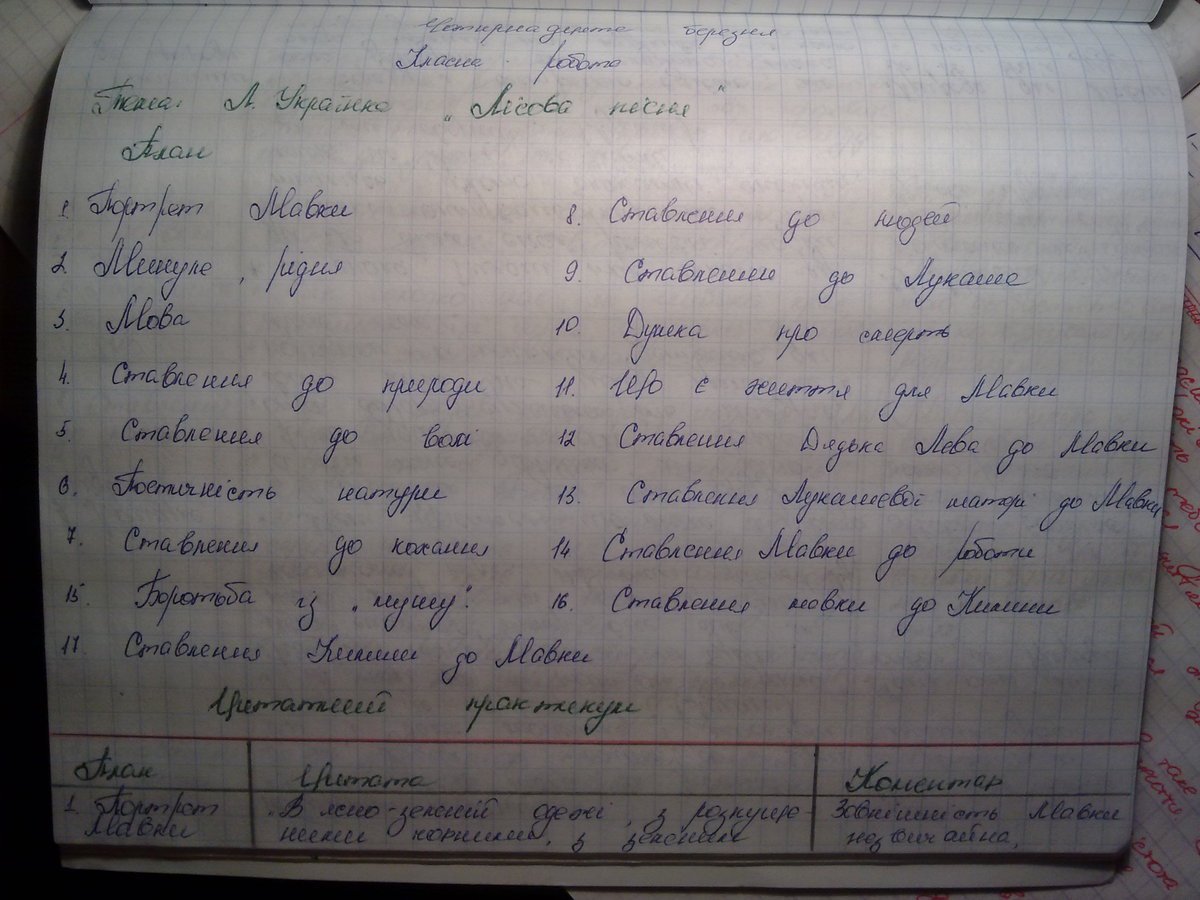 Чотирнадцяте березня
Класна робота
Тема: Л. Українка „Лісова пісня"
План
1. Портрет Мавки
2. Минуле, рідня
3. Мова
4. Ставлення до природи
5. Ставлення до волі
6. Поетичність натури
7. Ставлення до кохання
8. Ставлення до людей
9. Ставлення до Лукаша
10. Думка про смерть
11. Що є життя для Мавки
12 Ставлення Дядька Лева до Мавки
13. Ставлення Лукашевої матері до Мавки
14 Ставлення Мавки до роботи
15. Боротьба із „
16. Ставлення мавки до Килини
17. Ставлення Килини до Мавки
Цитатний практикум
План Цитата Коментар
1. Портрет Мавки
„В ясно-зеленій одежі, з розпуще-
ними чорними, з зеленим
Зовнішність Мавки
незвичайна,